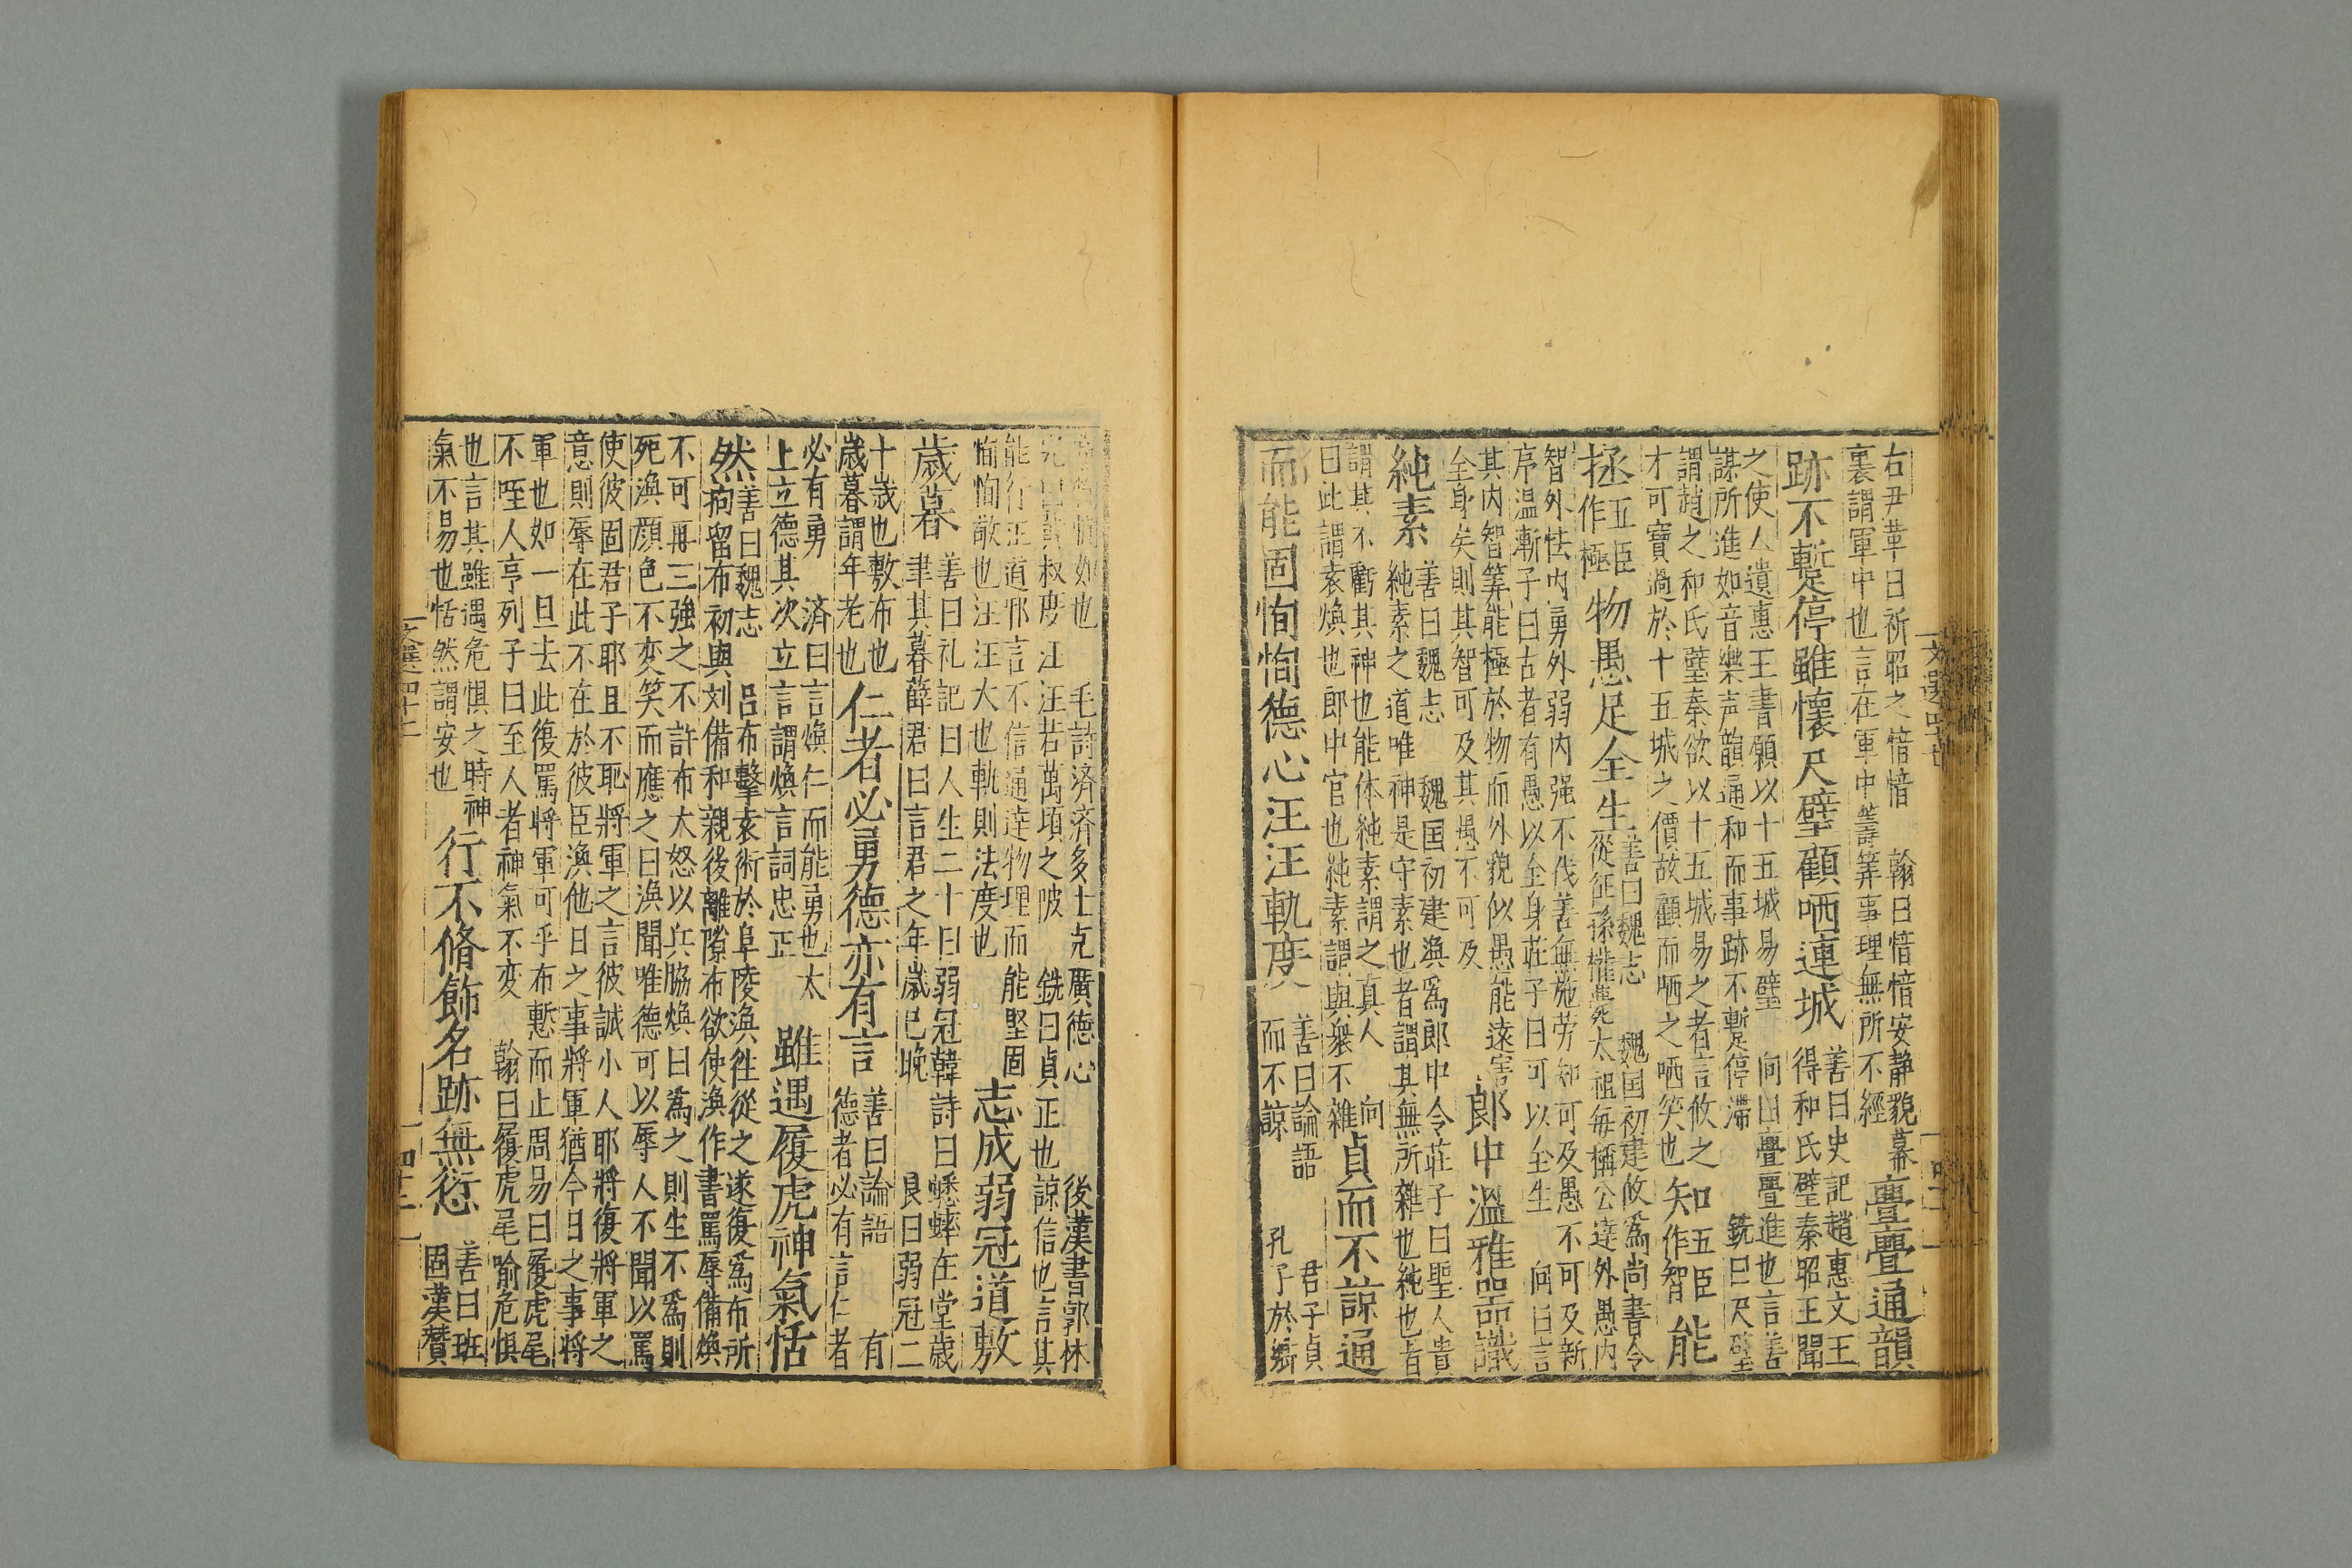 右尹革曰祈昭之愔愔　翰曰愔愔安静貌幕
裏謂軍中也言在軍中籌筭事理無所不經
亹亹通韻
跡不蹔停雖懷尺璧顧哂連城
善曰史記趙惠文王
得和氏璧秦昭王聞
之使人遺惠王書願以十五城易璧　向曰亹亹進也言善
謀所進如音樂声韻通和而事跡不蹔停滯　銑曰尺璧
謂趙之和氏璧秦欲以十五城易之者言攸之
才可寶過於十五城之價故顧而哂之哂笑也
知
五臣
作智
能
拯
五臣
作極
物愚足全生
善曰魏志　魏国初建攸爲尚書令
從征孫權薨死太祖每稱公達外愚内
智外怯内勇外弱内强不伐善無施劳知可及愚不可及新
序温漸子曰古者有愚以全身莊子曰可以全生　向曰言
其内智筭能極於物而外貌似愚能遠害
全身矣則其智可及其愚不可及
郎中溫雅器識
純素
善曰魏志　魏国初建渙爲郎中令莊子曰聖人貴
純素之道唯神是守素也者謂其無所雜也純也者
謂其不虧其神也能体純素謂之真人　向
曰此謂袁煥也郎中官也純素謂與衆不雜
貞而不諒通
而能固恂恂德心汪汪軌度
善曰論語　君子貞
而不諒　孔子於鄉
恂恂如也　毛詩濟濟多士克廣德心　後漢書郭林
叔度汪汪若萬頃之陂　銑曰貞正也諒信也言其
能行正道邪言不信通達物理而能堅固
恂恂敬也汪汪大也軌則法度也
志成弱冠道敷
歲暮
善曰礼記曰人生二十曰弱冠韓詩曰蟋蟀在堂歲
聿其暮薛君曰言君之年歲已晚　良曰弱冠二
十歲也敷布也
歲暮謂年老也
仁者必勇德亦有言
善曰論語　有
德者必有言仁者
必有勇　濟曰言煥仁而能勇也太
上立德其次立言謂煥言詞忠正
雖遇履虎神氣恬
然
善曰魏志　呂布擊袁術於阜陵渙往從之遂復爲布所
拘留布初與刘備和親後離隙布欲使渙作書罵辱備煥
不可再三強之不許布大怒以兵脇煥曰為之則生不爲則
死渙顏色不变笑而應之曰渙聞唯德可以辱人不聞以罵
使彼固君子耶且不恥將軍之言彼誠小人耶將復將軍之
意則辱在此不在於彼臣渙他日之事將軍猶今日之事將
軍也如一旦去此復罵將軍可乎布慙而止周易曰履虎尾
不咥人亨列子曰至人者神氣不变　翰曰履虎尾喻危惧
也言其雖遇危惧之時神
氣不易也恬然謂安也
行不脩飾名跡無愆
善曰班
固漢贊